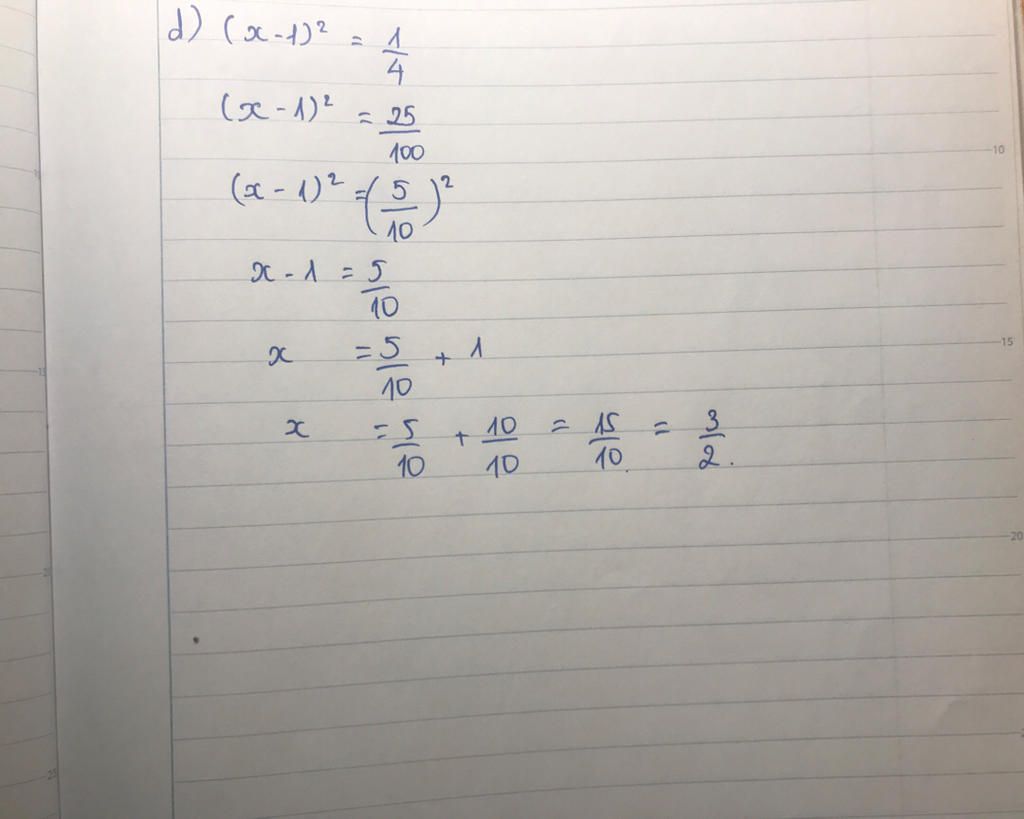 d) (x-1)² = 1/4
(x-1)² = 25/100
(x-1)² = (5/10)²
x - 1 = 5/10
x = 5/10 + 1
x = 5/10 + 10/10 = 15/10 = 3/2.
10
15
20
15
25